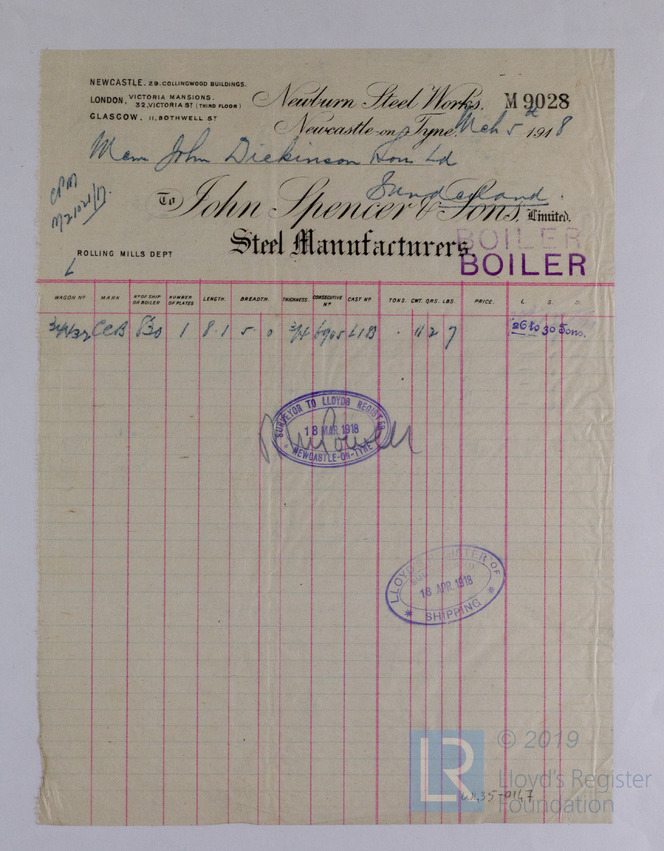 NEWCASTLE. 29. COLLINGWOOD BUILDINGS.
LONDON. VICTORIA MANSIONS.
32, VICTORIA ST (THIRD FLOOR)
GLASGOW. 11, BOTHWELL ST
Newburn Steel Works. M 9028
Newcastle-on-Tyne. Mch 5th 1918
Mess John Dickinson Sons Ld
Sunderland.
To John Spencer & Sons, Limited.
Steel Manufacturers
BOILER
BOILER
ROLLING MILLS DEPT
WAGON No MARK No OF SHIP OR BOILER NUMBER OF PLATES LENGTH. BREADTH. THICKNESS. CONSECUTIVE No CAST No TONS. CWT. QRS. LBS. PRICE. L. S. D.
1 8.1 5.0 3/4 6905 . 11 2 7 26 to 30 Tons.
SURVEYOR TO LLOYDS REGISTER
18 MAR 1918
NEWCASTLE-ON-TYNE
LLOYD'S REGISTER OF
18 APR 1918
SHIPPING
LR © 2019
Lloyd's Register
Foundation